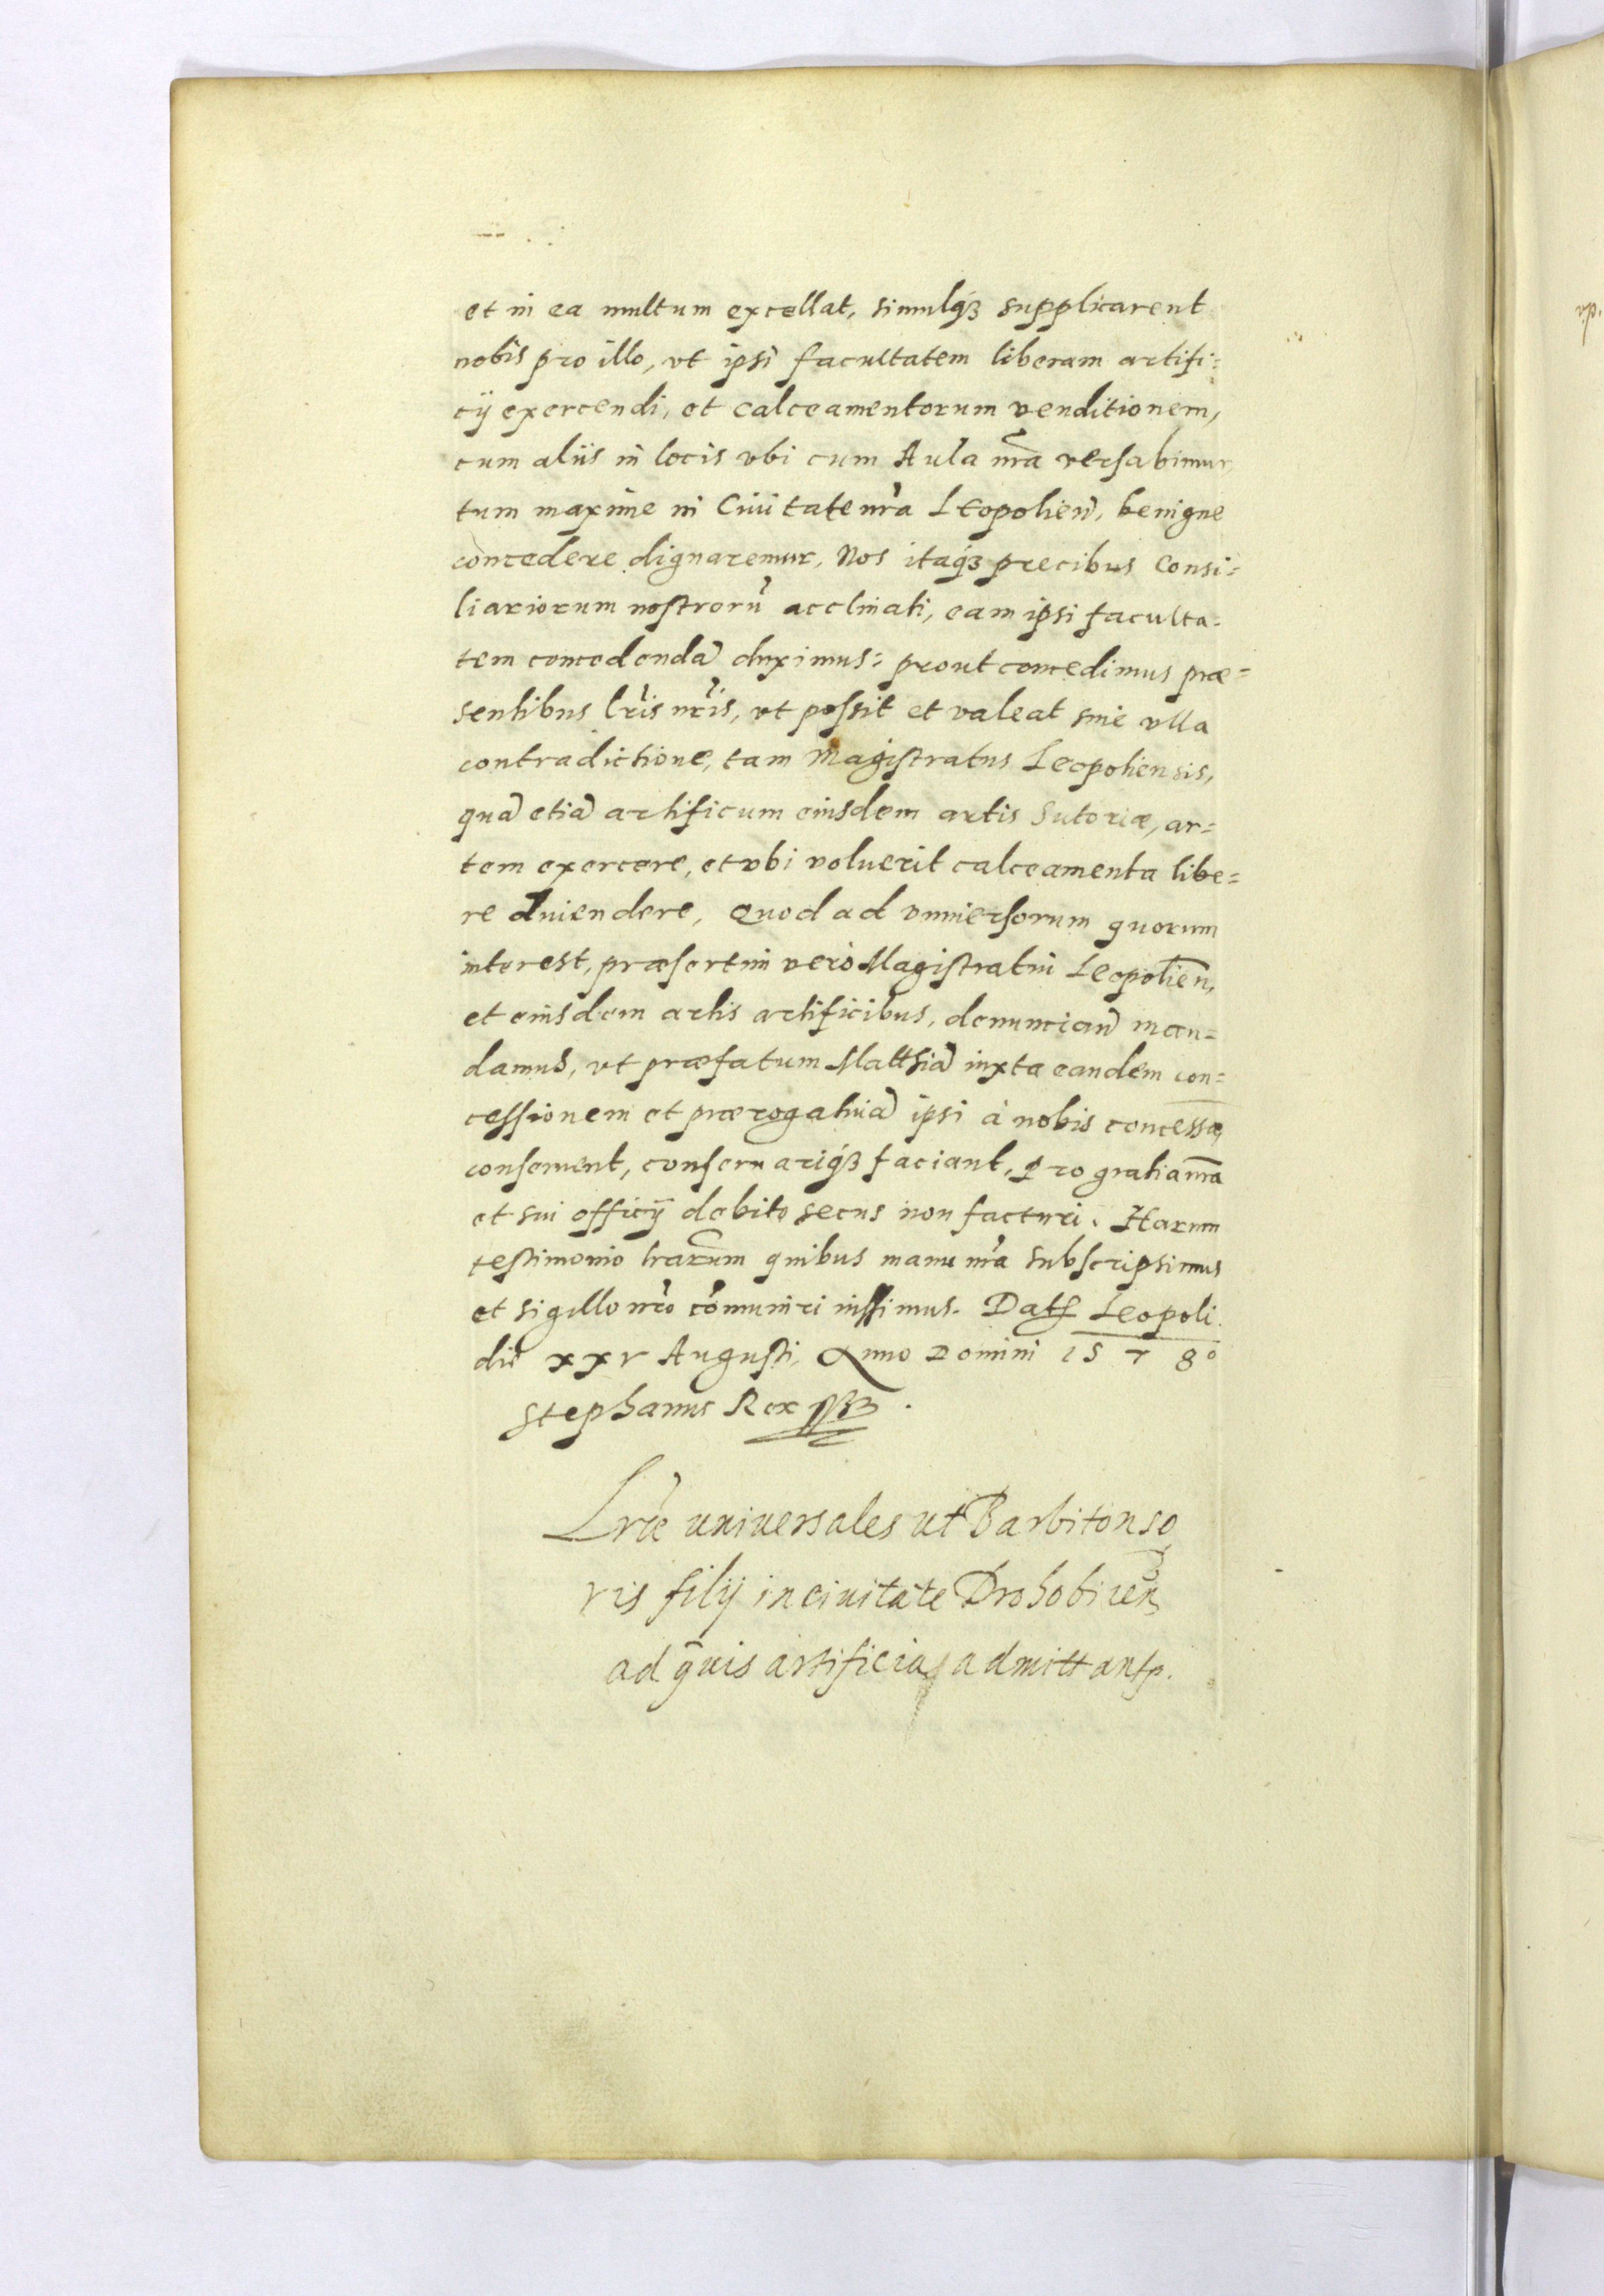 et in ea multum excellat, simulqȝ supplicarent
nobis pro illo, vt ipsi facultatem liberam artifi=
cij exercendi, et calceamentorum venditionem,
cum aliis in locis vbi cum Aula nra versabimur,
tum maxime in Ciuitate nra Leopolien, benigne
concedere dignaremur, Nos itaqȝ precibus Consi=
liariorum nostrorū acclinati, eam ipsi faculta=
tem concedendā duximus: prout concedimus præ=
sentibus lris nris, vt possit et valeat sine vlla
contradictione, tam Magistratus Leopoliensis,
quā etiā artificum eiusdem artis Sutoriæ, ar=
tem exercere, et vbi voluerit calceamenta libe=
re diuendere, Quod ad vniuersorum quorum
interest, præsertim verò Magistratui Leopolien,
et eiusdem artis artificibus, denunciand man=
damus, vt præfatum Matthiā iuxta eandem con=
cessionem et prærogatiuā ipsi à nobis concessā,
conseruent, conseruariqȝ faciant, Pro gratia nra
et sui officij debito secus non facturi. Harum
testimonio lrarum quibus manu nra subscripsimus
et sigillo nro cōmuniri iussimus. Dat Leopoli
die xxv Augusti, Anno Domini 1578°
Stephanus Rex ssȝ.
Lræ uniuersales ut Barbitonso
ris filij in ciuitate Drohobicen
ad quis artificia admittantur.